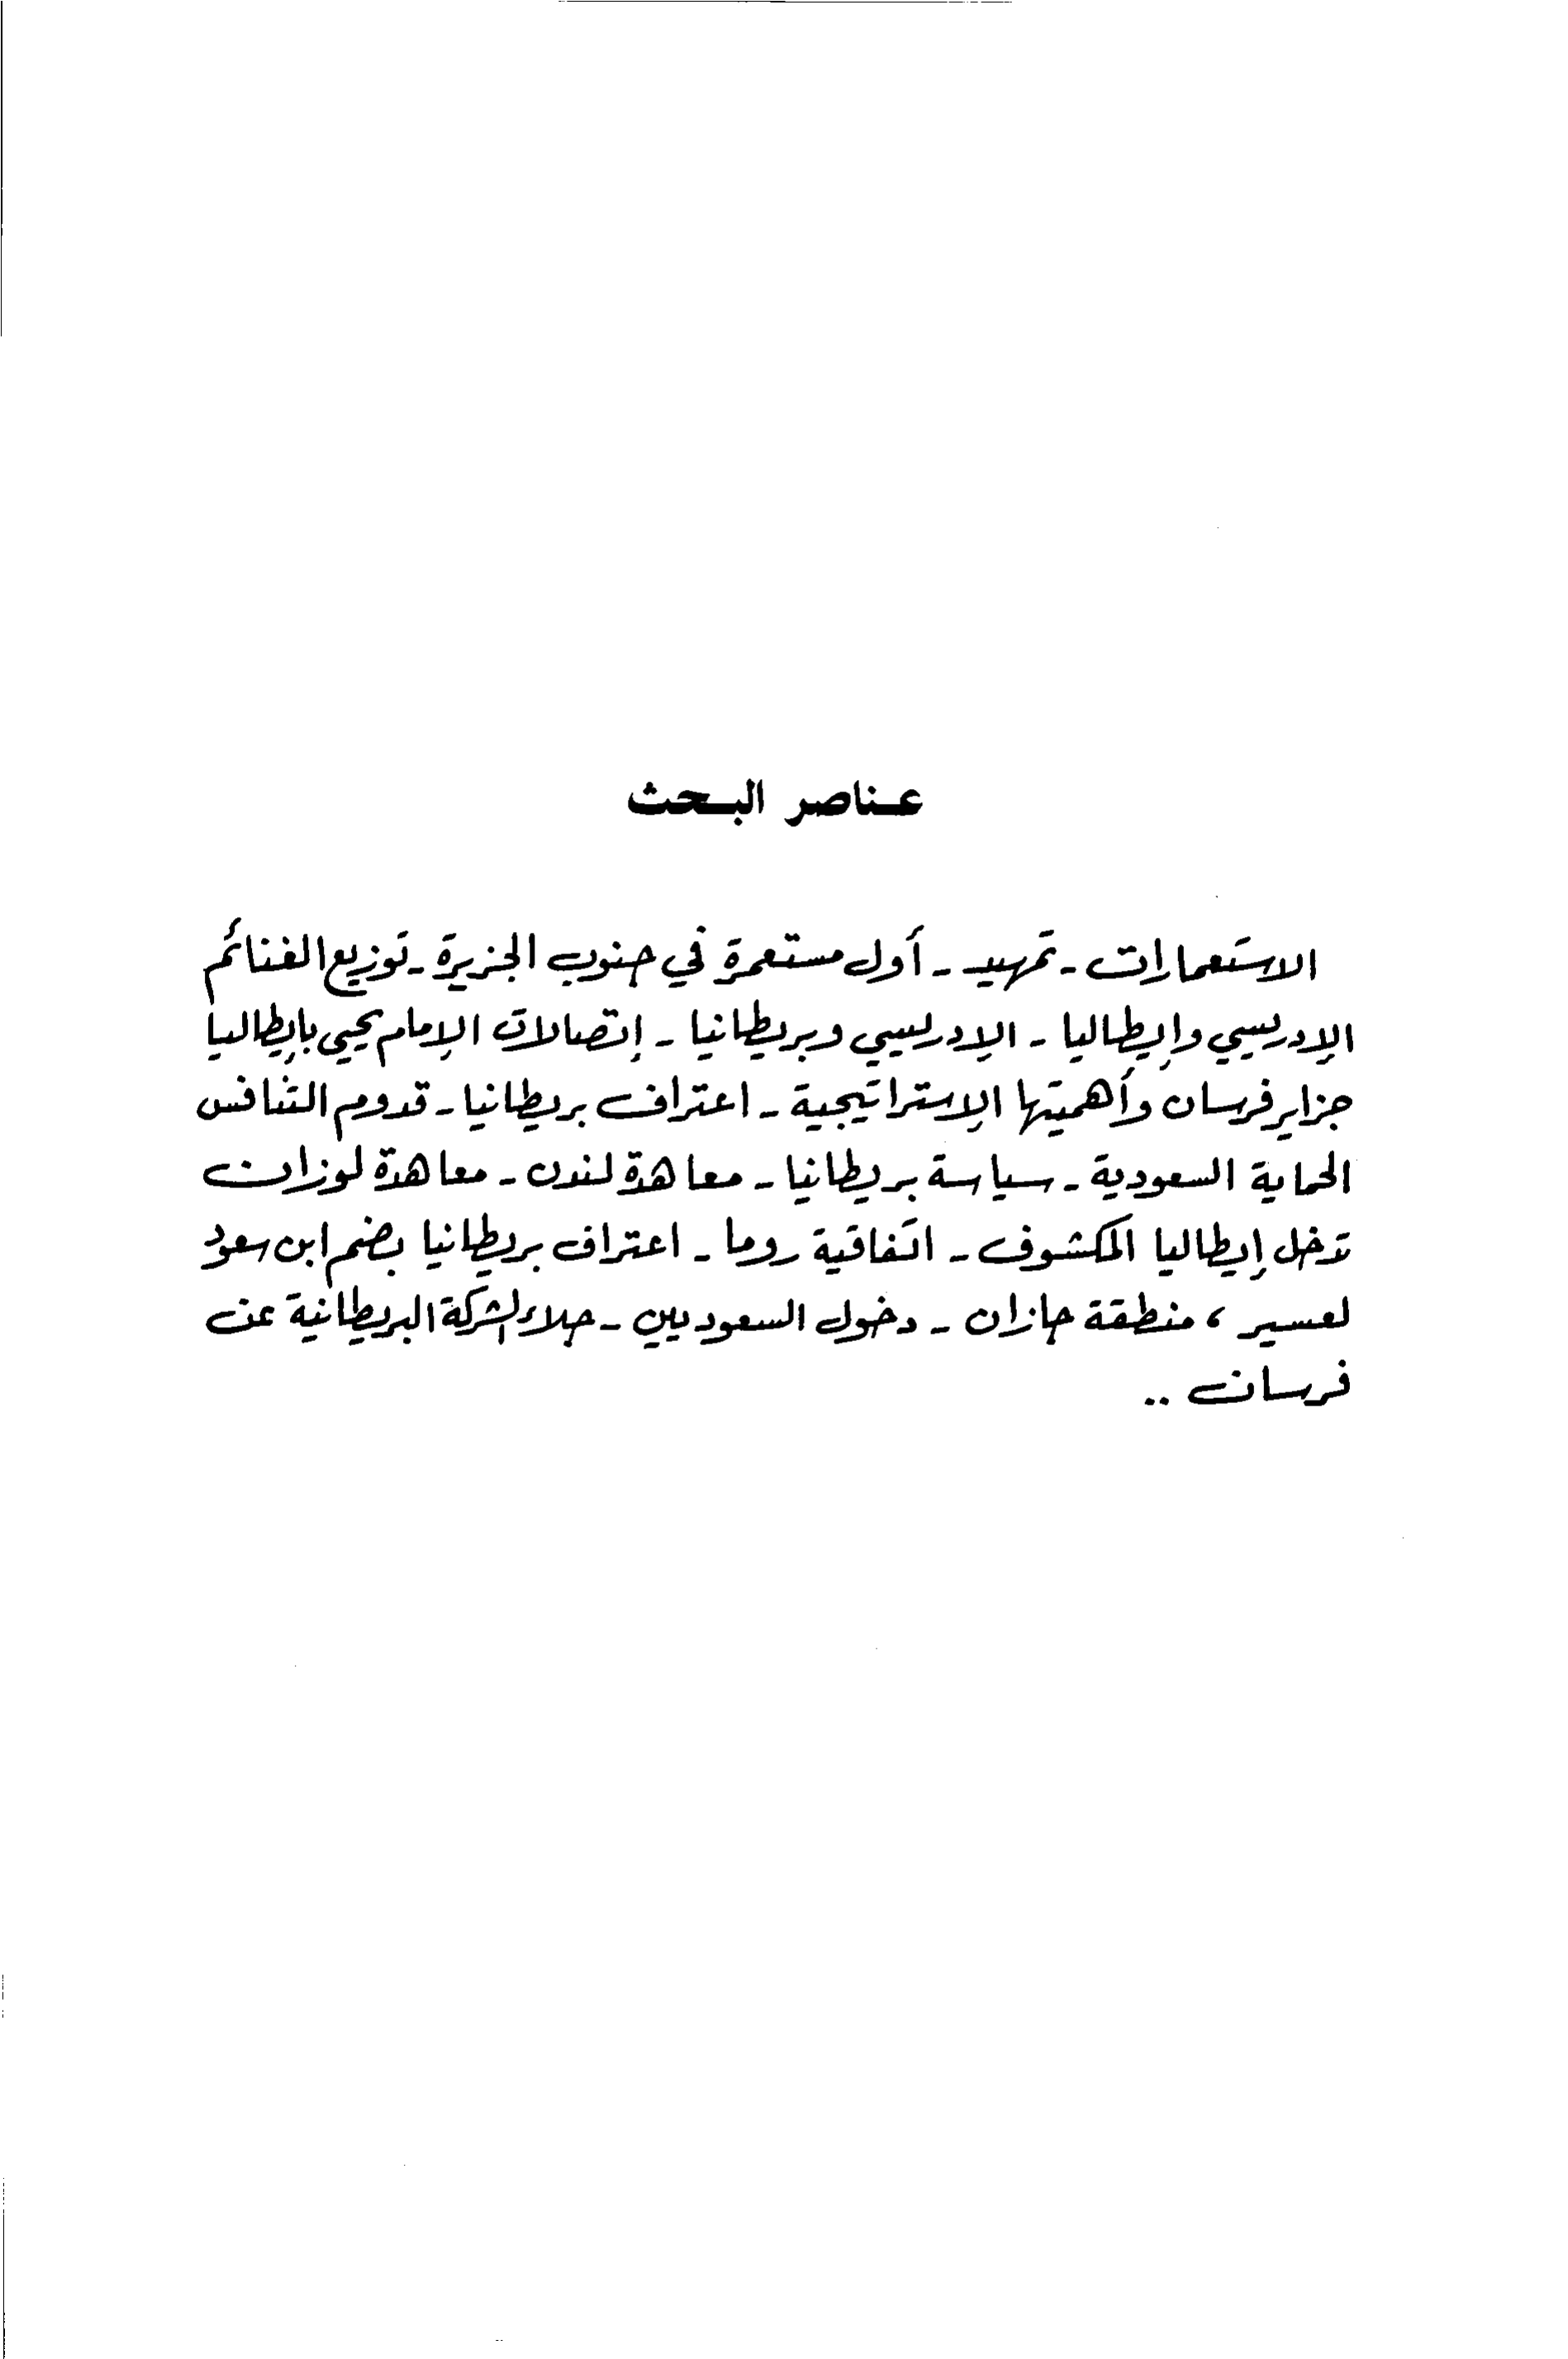 عناصر البحث
الاستعمارات - تمهيد - أول مستعمرة في جنوب الجزيرة - توزيع الغنائم
الإدريسي وإيطاليا - الإدريسي وبريطانيا - إتصالات الإمام يحيى بإيطاليا
جزاير فرسان وأهميتها الإستراتيجية - اعتراف بريطانيا - قدوم التنافس
الحماية السعودية - سياسة بريطانيا - معاهدة لندن - معاهدة لوزان
تدخل إيطاليا المكشوف - اتفاقية روما - اعتراف بريطانيا بضم ابن سعود
لعسير ، منطقة جازان - دخول السعوديين - جلاء الشركة البريطانية عن
فرسان ..